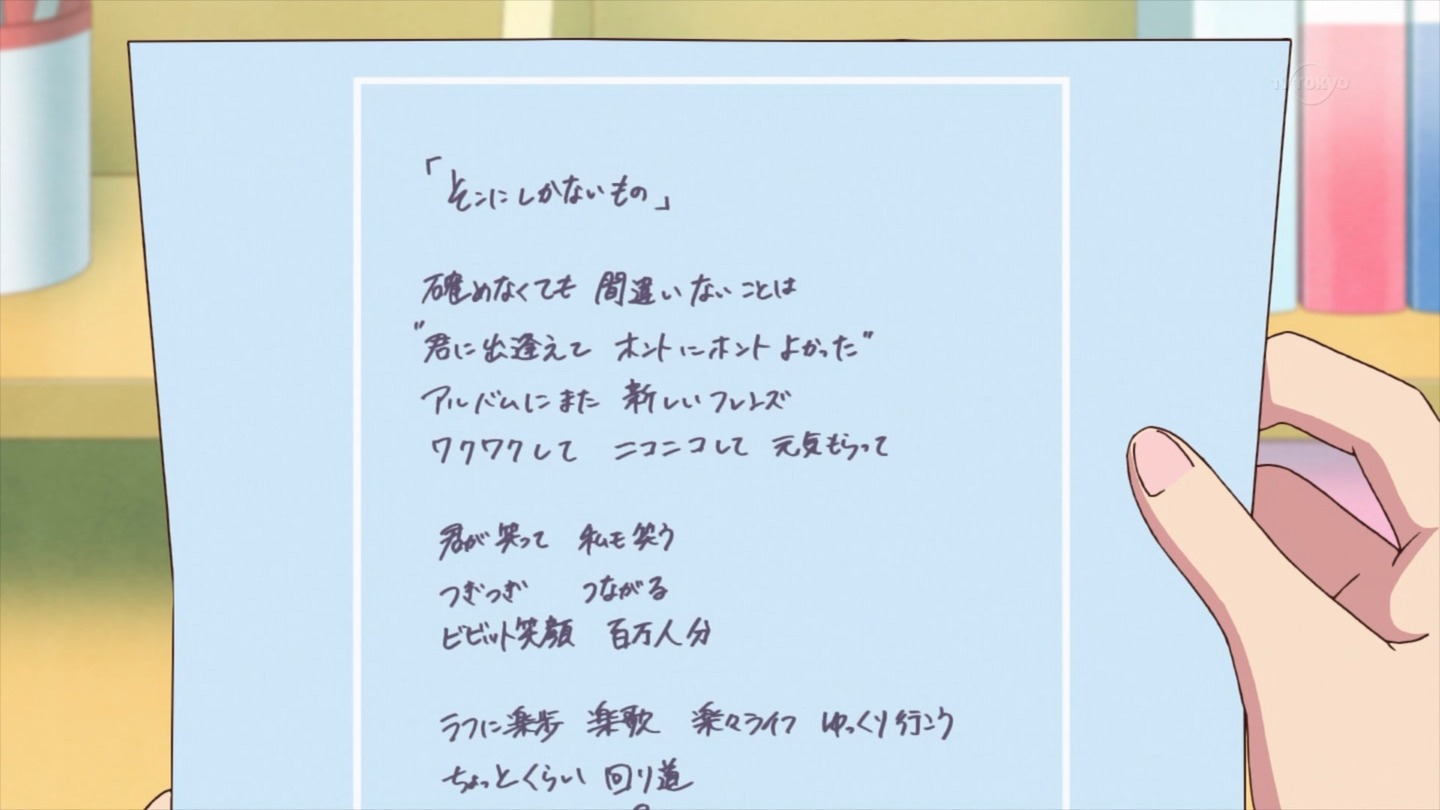 TV TOKYO
「そこにしかないもの」
確めなくても 間違いないことは
"君に出逢えて ホントにホントよかった"
アルバムにまた 新しいフレンズ
ワクワクして ニコニコして 元気もらって
君が笑って 私も笑う
つぎつぎ つながる
ビビット笑顔 百万人分
ラフに楽歩 楽歌 楽々ライフ ゆっくり行こう
ちょっとくらい 回り道